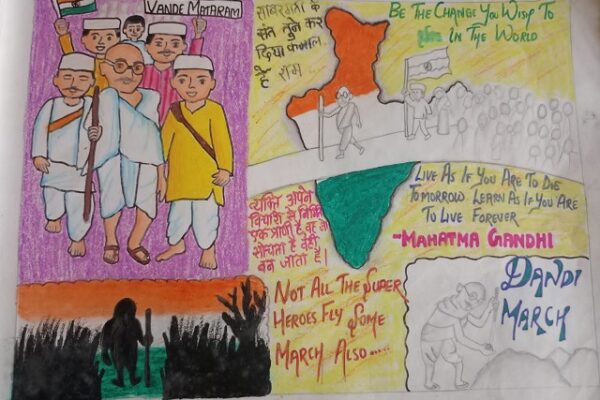 VANDE MATARAM
साबरमती के
संत तूने कर
दिया कमाल
हे राम
BE THE CHANGE YOU WISH TO
IN THE WORLD
व्यक्ति अपने
विचारों से निर्मित
एक प्राणी है, वह जो
सोचता है वही
बन जाता है।
LIVE AS IF YOU ARE TO DIE
TOMORROW LEARN AS IF YOU ARE
TO LIVE FOREVER
-MAHATMA GANDHI
NOT ALL THE SUPER
HEROES FLY SOME
MARCH ALSO.....
DANDI
MARCH